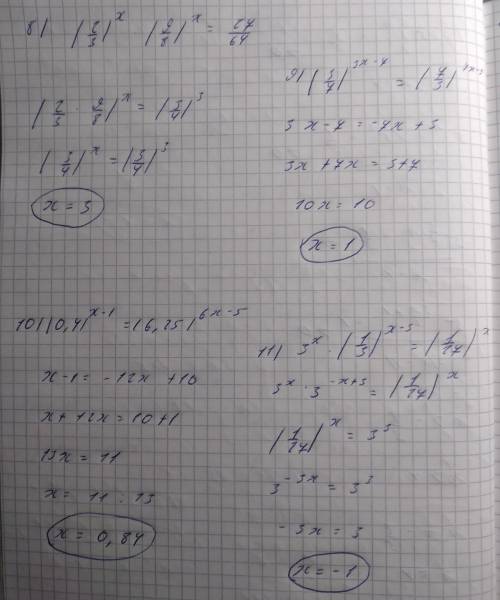 8) (2/3)^x (9/8)^x = 27/64
(2/3 · 9/8)^x = (3/4)^3
(3/4)^x = (3/4)^3
x = 3
9) (3/7)^3x-7 = (7/3)^7x-3
3x-7 = -7x+3
3x+7x = 3+7
10x = 10
x = 1
10) (0,4)^x-1 = (6,25)^6x-5
x-1 = -12x+10
x+12x = 10+1
13x = 11
x = 11 : 13
x = 0,84
11) 3^x · (1/3)^x-3 = (1/27)^x
3^x · 3^-x+3 = (1/27)^x
(1/27)^x = 3^3
3^-3x = 3^3
-3x = 3
x = -1